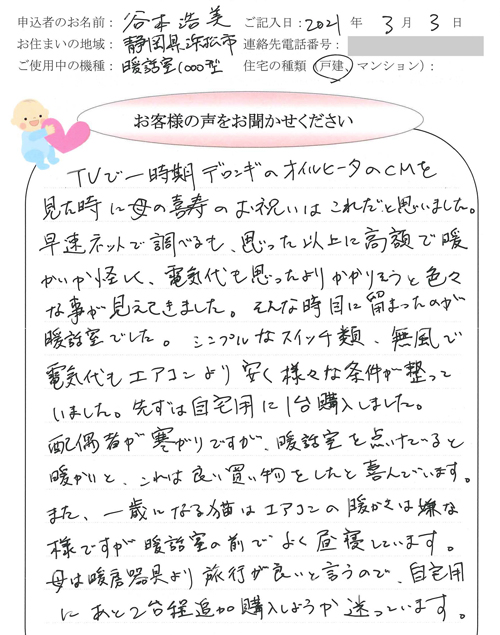 申込者のお名前： 谷本浩美 ご記入日：2021年 3月 3日
お住まいの地域： 静岡県浜松市 連絡先電話番号：
ご使用中の機種： 暖話室1000型 住宅の種類（戸建、マンション）：
お客様の声をお聞かせください
TVで一時期デロンギのオイルヒータのCMを
見た時に母の喜寿のお祝いはこれだと思いました。
早速ネットで調べるも、思った以上に高額で暖
かいか怪しく、電気代も思ったよりかかりそうと色々
な事が見えてきました。そんな時目に留まったのが
暖話室でした。シンプルなスイッチ類、無風で
電気代もエアコンより安く様々な条件が整って
いました。先ずは自宅用に1台購入しました。
配偶者が寒がりですが、暖話室を点けていると
暖かいと、これは良い買い物をしたと喜んでいます。
また、一歳になる猫はエアコンの暖かさは嫌な
様ですが暖話室の前でよく昼寝しています。
母は暖房器具より旅行が良いと言うので、自宅用
にあと2台程追加購入しようか迷っています。